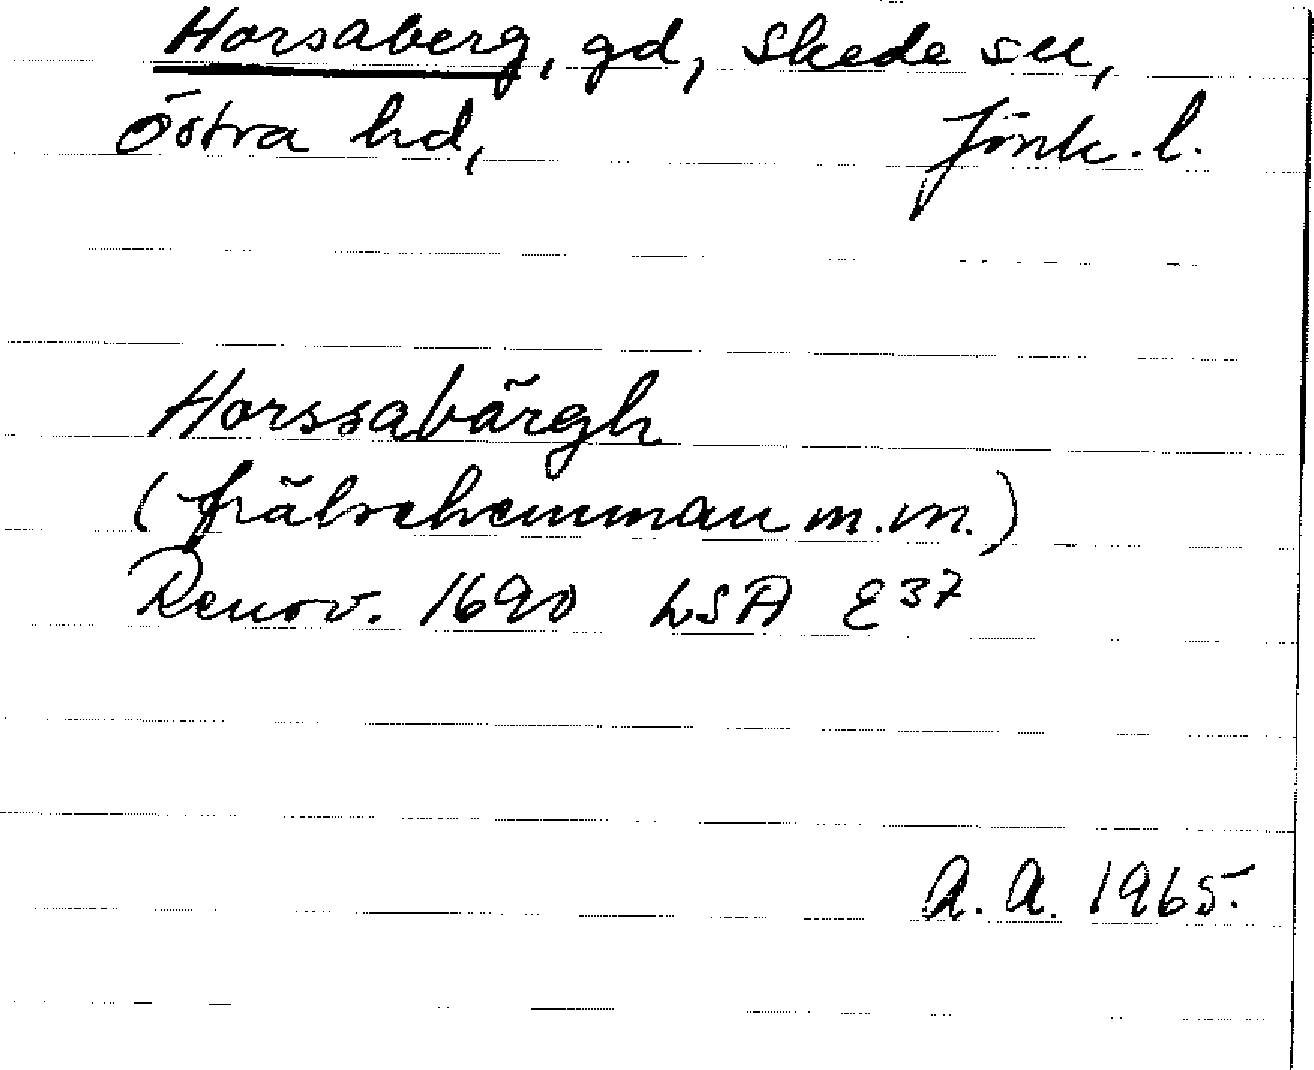 Horsaberg, gd, Skede sn,
Östra hd, Jönk. l.
Horssabärgh
(frälsehemman m.m.)
Renov. 1690 LSA E37
A. A. 1965.